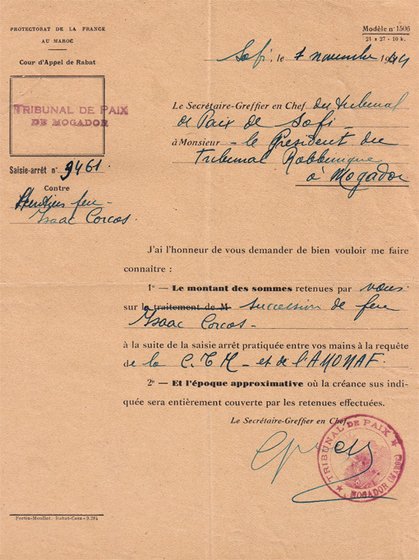 PROTECTORAT DE LA FRANCE
AU MAROC
Cour d'Appel de Rabat
TRIBUNAL DE PAIX
DE MOGADOR
Saisie-arrêt n° 9461
Contre
feu
Isaac Corcos
Modèle n° 1506
21 x 27 - 10 k.
Safi, le 7 novembre 1944
Le Secrétaire-Greffier en Chef du tribunal
de Paix de Safi
à Monsieur - le Président du
Tribunal Rabbinique
à Mogador
J'ai l'honneur de vous demander de bien vouloir me faire
connaître :
1° — Le montant des sommes retenues par vous
sur la traitement de M succession de feu
Isaac Corcos -
à la suite de la saisie arrêt pratiquée entre vos mains à la requête
de la C.T.M - et de l'AMONAF.
2° — Et l'époque approximative où la créance sus indi-
quée sera entièrement couverte par les retenues effectuées.
Le Secrétaire-Greffier en Chef,
TRIBUNAL DE PAIX
MOGADOR (MAROC)
Fortin-Moullot, Rabat-Casa - 9.284